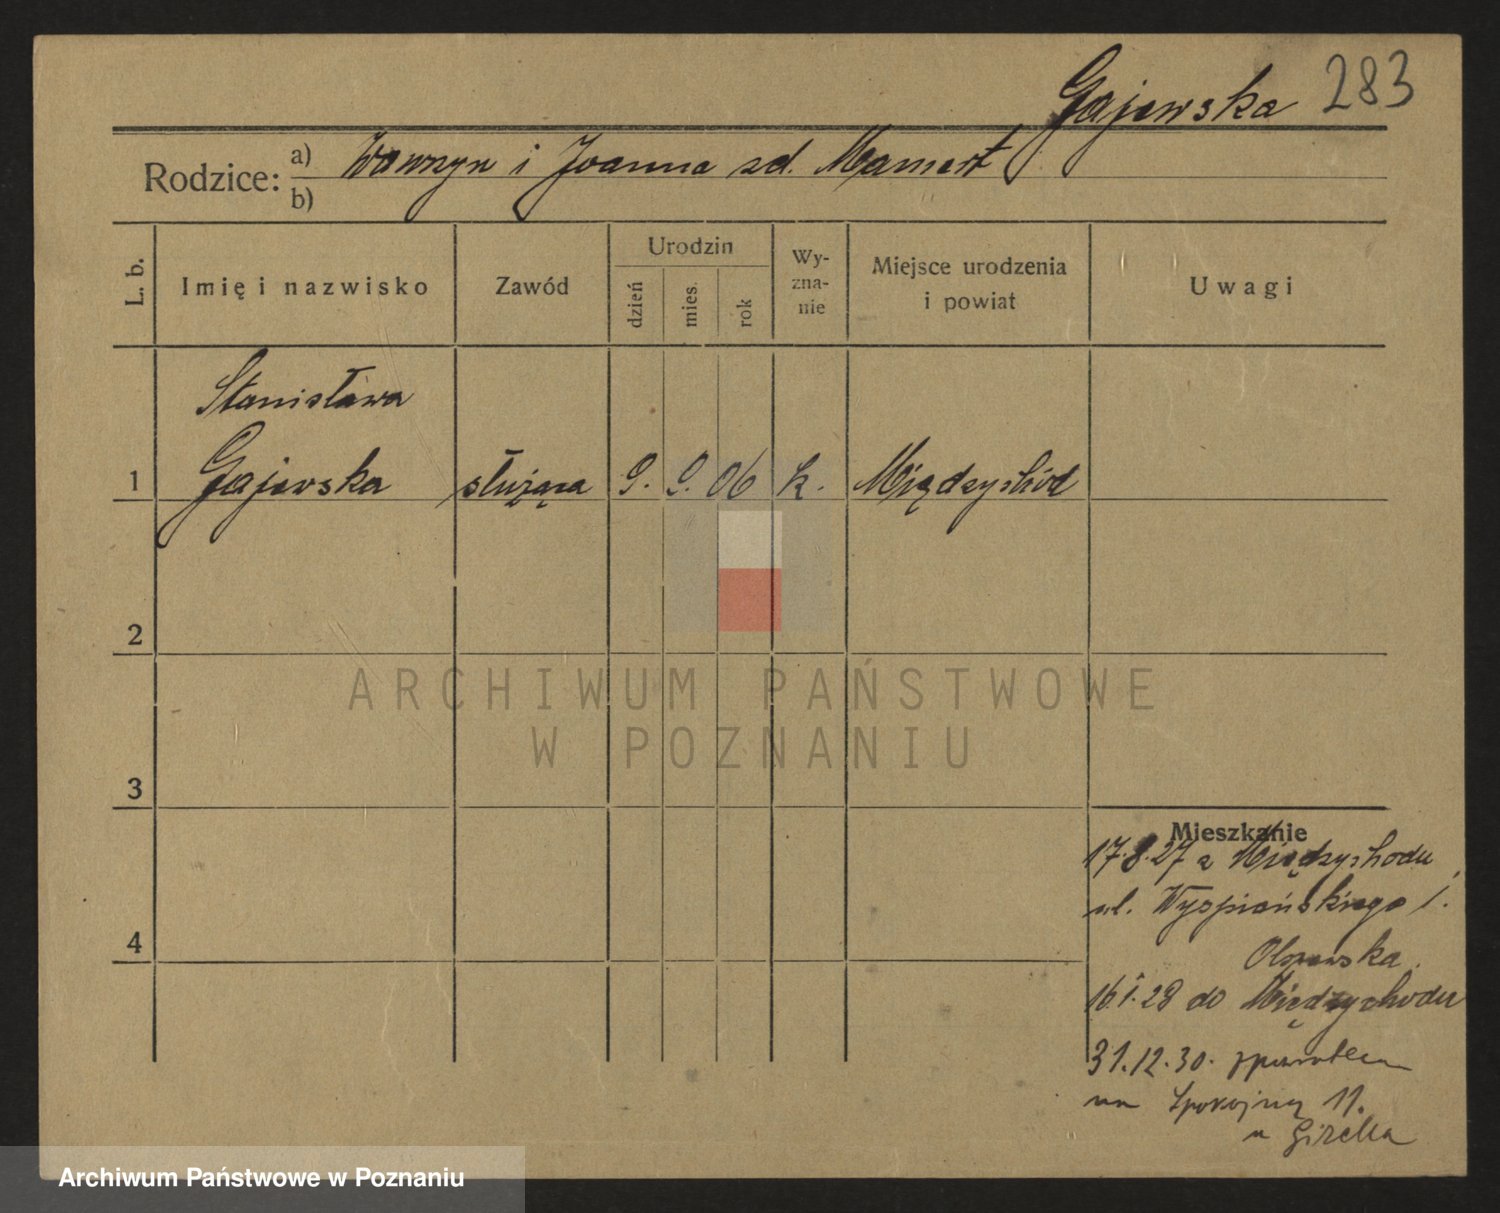 Gajewska 283
Rodzice: a) Wawrzyn i Joanna zd. Mamert
b)
L. b. Imię i nazwisko Zawód Urodzin dzień mies. rok Wy-zna-nie Miejsce urodzenia i powiat Uwagi
Stanisława
1 Gajewska służąca 9. 9. 06 k. Międzychód
2
ARCHIWUM PAŃSTWOWE
W POZNANIU
3
Mieszkanie
17.8.27 z Międzychodu
ul. Wyspiańskiego 1.
16.1.28 do Międzychodu
4
31.12.30. zpowrotem
na Spokojną 11.
u
Archiwum Państwowe w Poznaniu